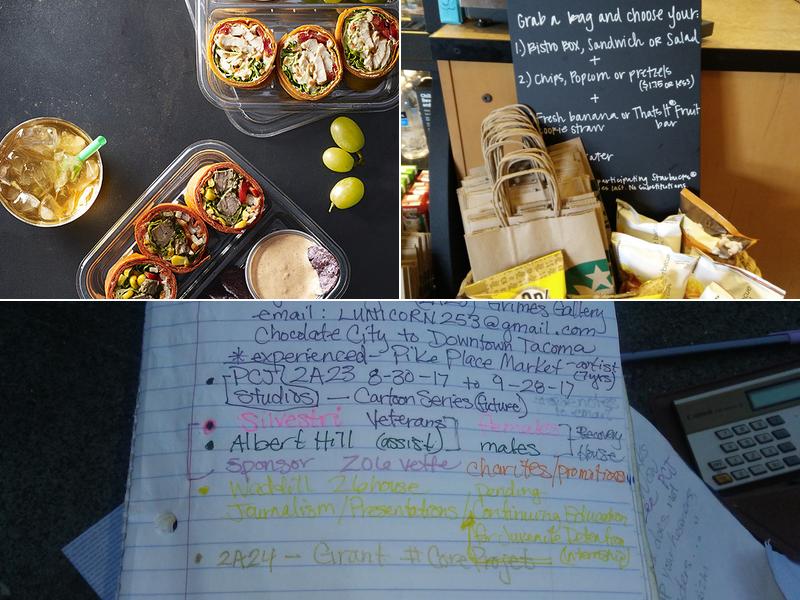 Grab a bag and choose your:
1.) Bistro Box, Sandwich or Salad
+
2.) Chips, Popcorn or pretzels
($1.75 or less)
+
Fresh banana or That's It® Fruit
cookie straw bar
ater
participating Starbucks®
es last. No substitutions.
Grimes Gallery
email: LUNICORN253@gmail.com
Chocolate City to Downtown Tacoma
* experienced - Pike Place Market - artist
(7yrs)
PCJ 2A23 8-30-17 to 9-28-17
Studios — Cartoon Series (future)
Silvestri Veterans females
Albert Hill (assist) males Recovery
House
Sponsor Zoe vette charites/promotions
Waddill 26house pending
Journalism/Presentations/Continuing Education
for Juvenile Detention
2A24 - Grant # Core Projet (internship)